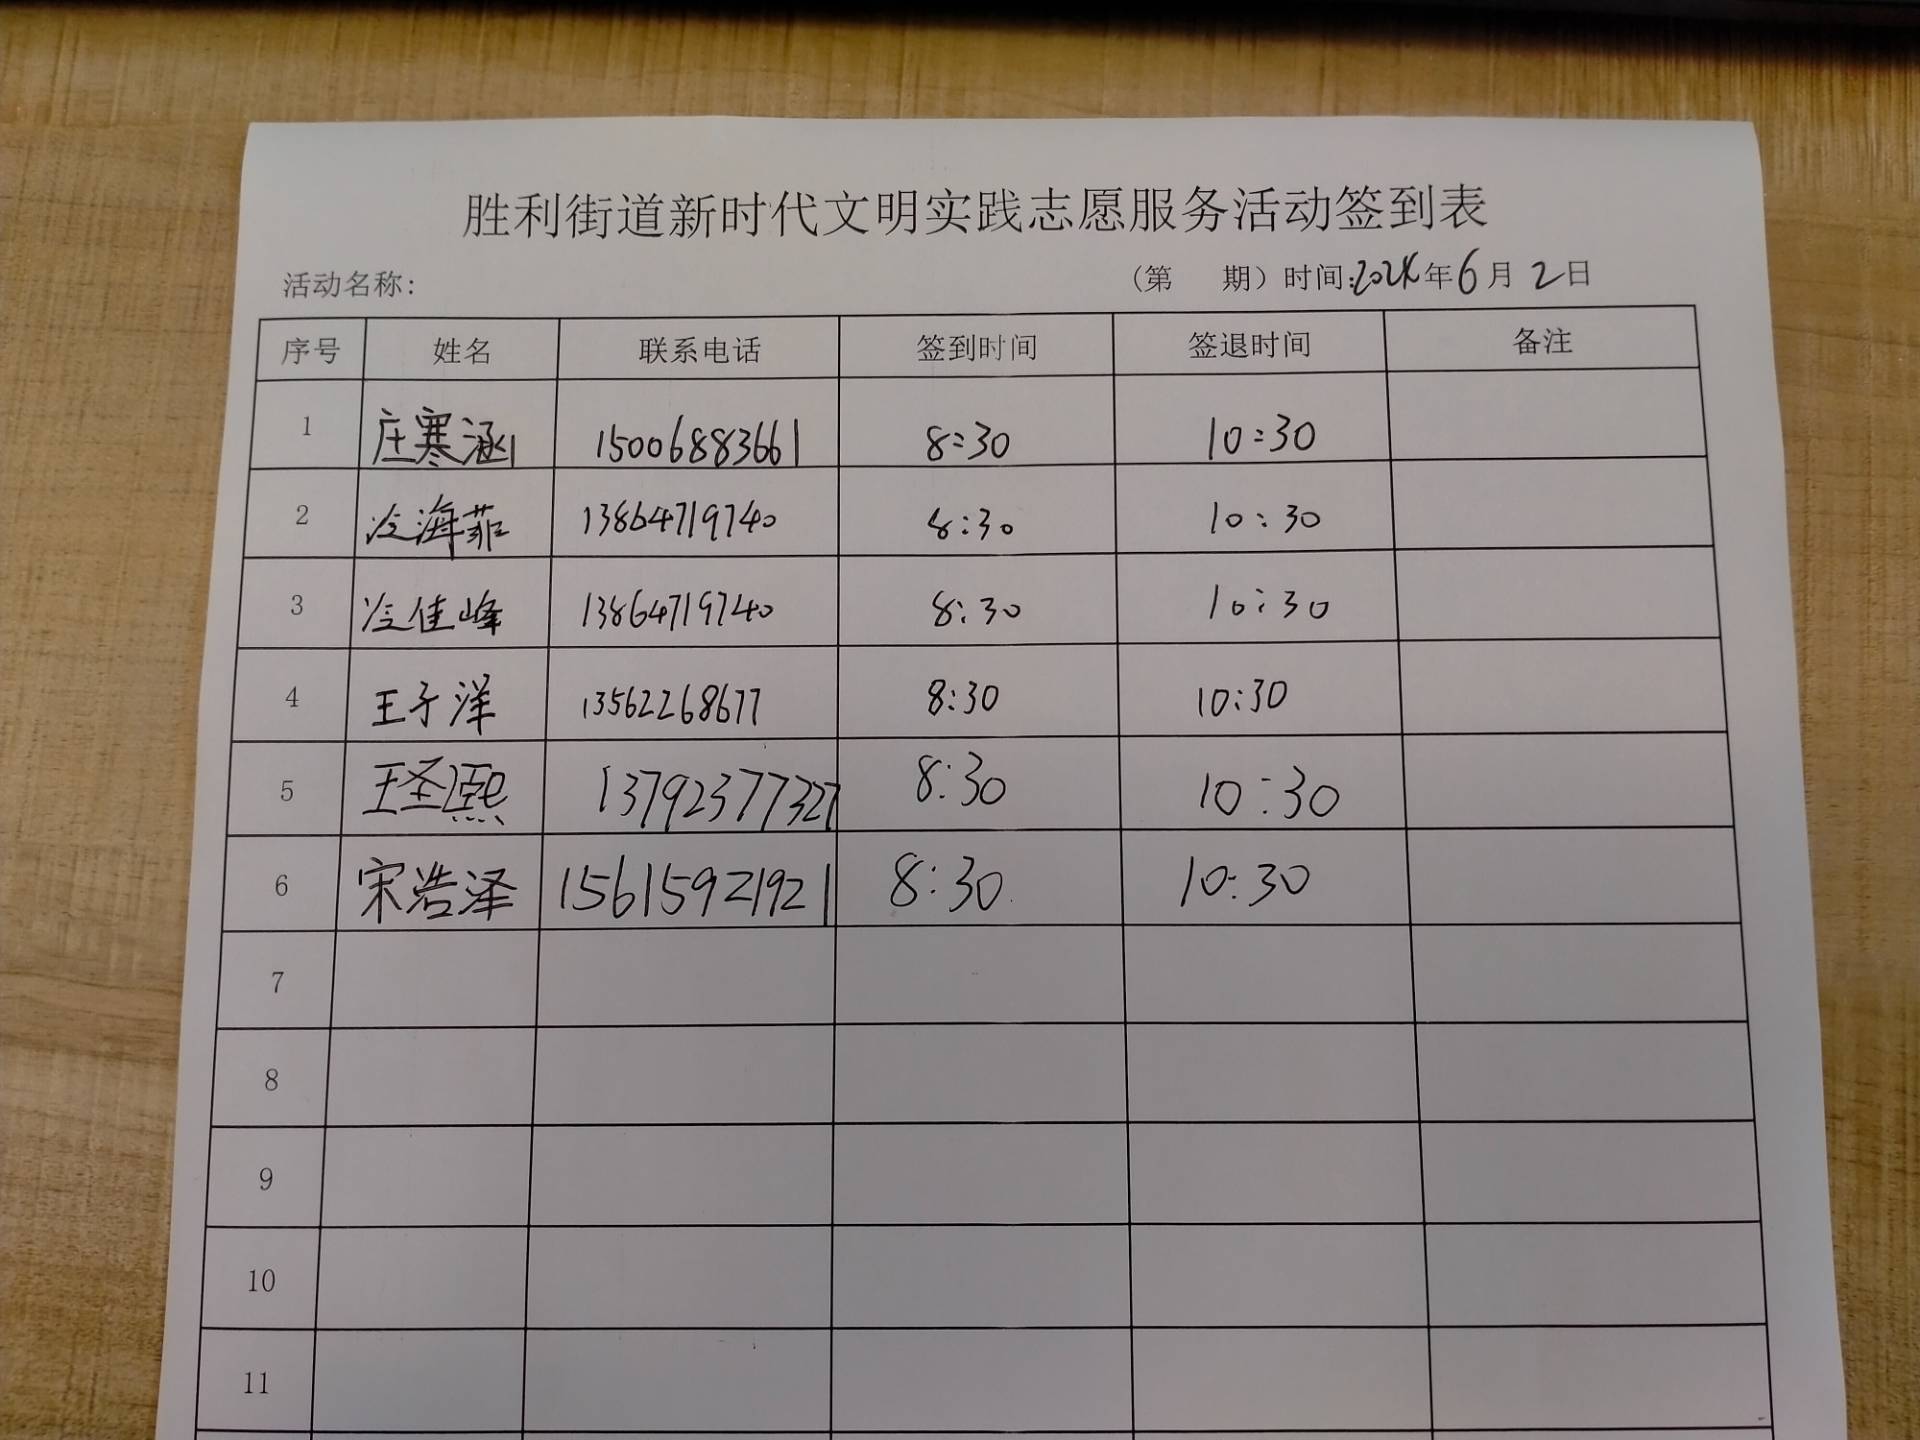 胜利街道新时代文明实践志愿服务活动签到表
活动名称: （第 期）时间:2024年6月2日
序号 姓名 联系电话 签到时间 签退时间 备注
1 庄寒涵 15006883661 8:30 10:30
2 冷海菲 13864719740 8:30 10:30
3 冷佳峰 13864719740 8:30 10:30
4 王子洋 13562268677 8:30 10:30
5 王圣熙 13792377327 8:30 10:30
6 宋浩泽 15615921921 8:30 10:30
7
8
9
10
11